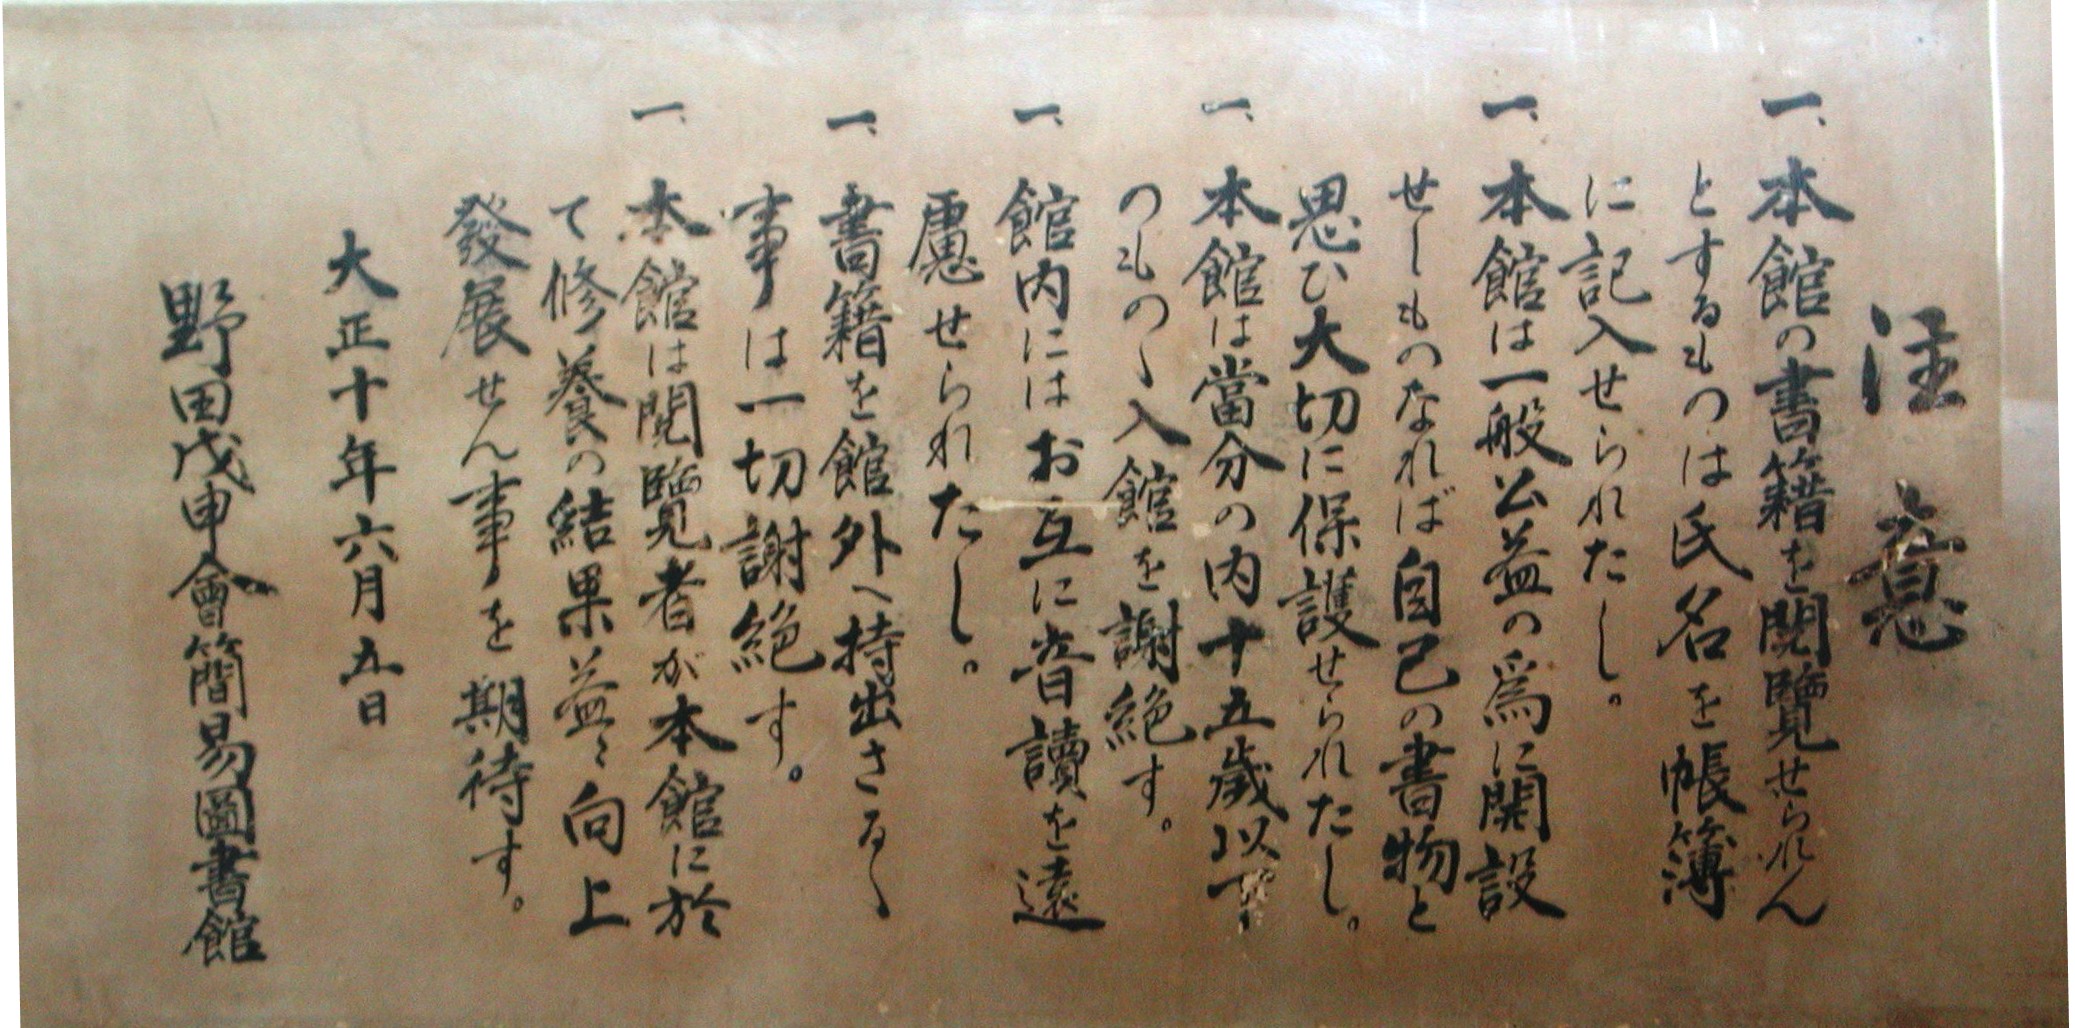 注意
一、本館の書籍を閲覽せられん
とするものは氏名を帳簿
に記入せられたし。
一、本館は一般公益の爲に開設
せしものなれば自己の書物と
思ひ大切に保護せられたし。
一、本館は當分の内十五歳以下
のものゝ入館を謝絶す。
一、館内にはお互に音讀を遠
慮せられたし。
一、書籍を館外へ持出さるゝ
事は一切謝絶す。
一、本館は閲覽者が本館に於
て修養の結果益々向上
發展せん事を期待す。
大正十年六月五日
野田戊申會簡易圖書館